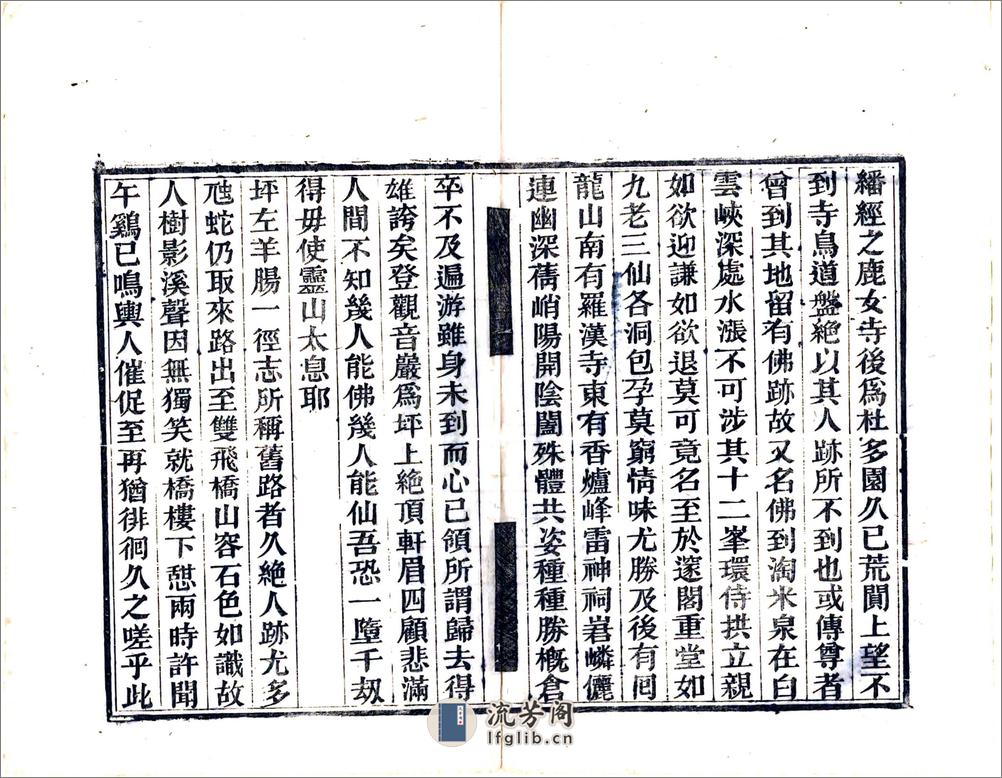 繙經之鹿女寺後爲杜多園久已荒閴上望不
到寺鳥道盤絶以其人跡所不到也或傳尊者
曾到其地留有佛跡故又名佛到淘米泉在白
雲峽深處水漲不可涉其十二峯環侍拱立親
如欲迎謙如欲退莫可竟名至於邃閣重堂如
九老三仙各洞包孕莫窮情味尤勝及後有囘
龍山南有羅漢寺東有香爐峰雷神祠岩嶙儷
連幽深蒨峭陽開陰闔殊體共姿種種勝槪倉
卒不及遍游雖身未到而心已領所謂歸去得
雄誇矣登觀音巖爲坪上絶頂軒眉四顧悲滿
人間不知幾人能佛幾人能仙吾恐一墮千刼
得毋使靈山太息耶
坪左羊腸一徑志所稱舊路者久絶人跡尤多
虺蛇仍取來路出至雙飛橋山容石色如識故
人樹影溪聲因無獨笑就橋樓下憇兩時許聞
午鷄已鳴輿人催促至再猶徘徊久之嗟乎此
流芳阁
lfglib.cn